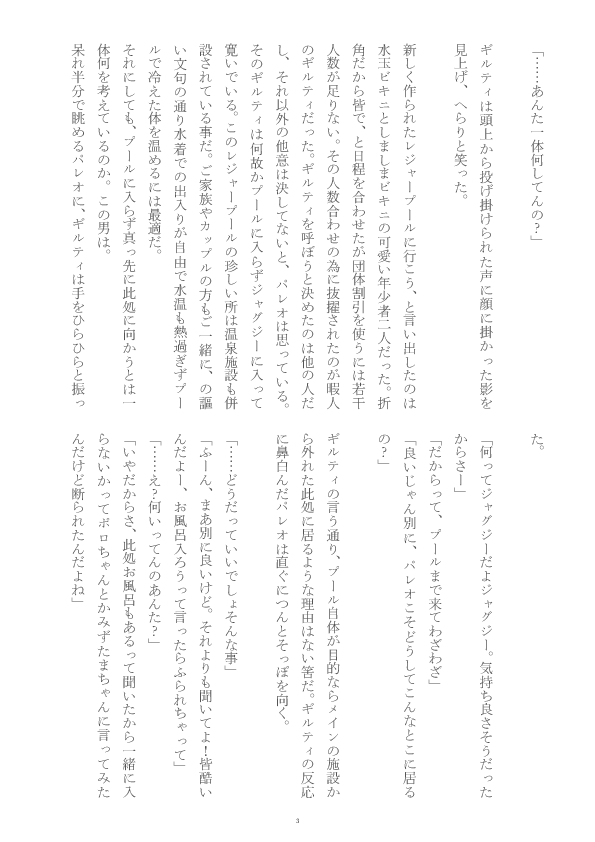 「……あんた一体何してんの？」
ギルティは頭上から投げ掛けられた声に顔に掛かった影を
見上げ、へらりと笑った。
新しく作られたレジャープールに行こう、と言い出したのは
水玉ビキニとしましまビキニの可愛い年少者二人だった。折
角だから皆で、と日程を合わせたが団体割引を使うには若干
人数が足りない。その人数合わせの為に抜擢されたのが暇人
のギルティだった。ギルティを呼ぼうと決めたのは他の人だ
し、それ以外の他意は決してないと、パレオは思っている。
そのギルティは何故かプールに入らずジャグジーに入って
寛いでいる。このレジャープールの珍しい所は温泉施設も併
設されている事だ。ご家族やカップルの方もご一緒に、の謳
い文句の通り水着での出入りが自由で水温も熱過ぎずプー
ルで冷えた体を温めるには最適だ。
それにしても、プールに入らず真っ先に此処に向かうとは一
体何を考えているのか。この男は。
呆れ半分で眺めるパレオに、ギルティは手をひらひらと振っ
た。
「何ってジャグジーだよジャグジー。気持ち良さそうだった
からさー」
「だからって、プールまで来てわざわざ」
「良いじゃん別に、パレオこそどうしてこんなとこに居る
の？」
ギルティの言う通り、プール自体が目的ならメインの施設か
ら外れた此処に居るような理由はない筈だ。ギルティの反応
に鼻白んだパレオは直ぐにつんとそっぽを向く。
「……どうだっていいでしょそんな事」
「ふーん、まあ別に良いけど。それよりも聞いてよ！皆酷い
んだよー、お風呂入ろうって言ったらふられちゃって」
「……え？何いってんのあんた？」
「いやだからさ、此処お風呂もあるって聞いたから一緒に入
らないかってポロちゃんとかみずたまちゃんに言ってみた
んだけど断られたんだよね」
3